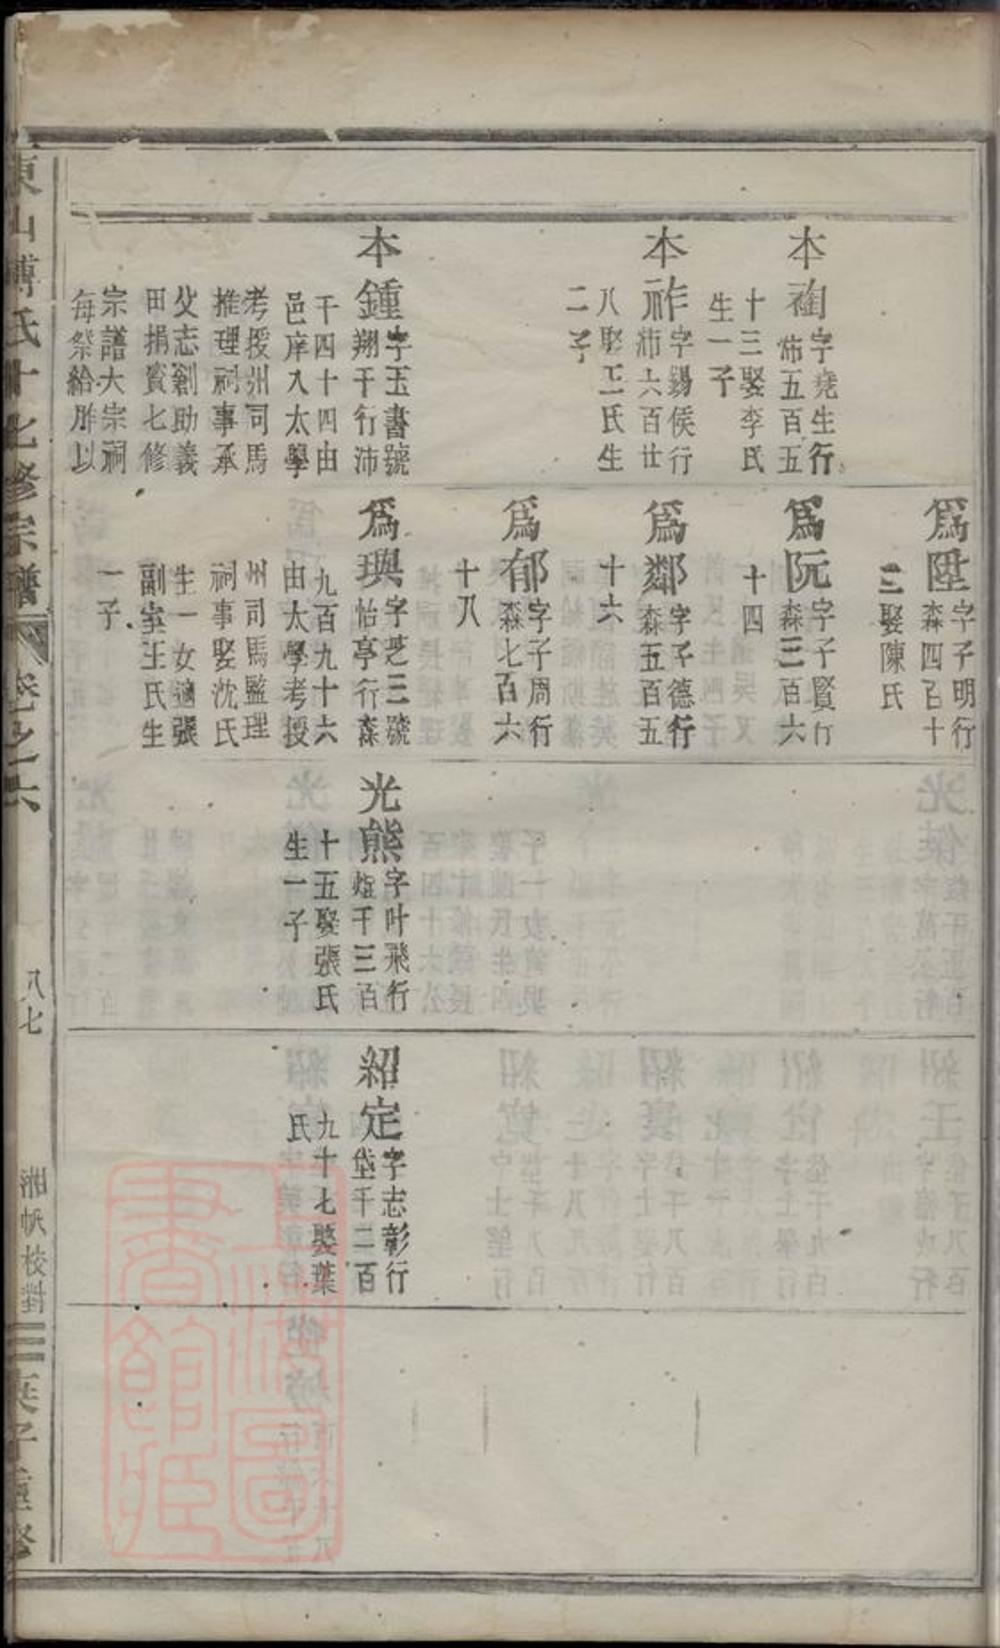 本䄎字堯生行㳈五百五
十三娶李氏
生一子
本祚字錫侯行沛六百廿
八娶王氏生
二子
本鍾字玉書號翔千行沛
千四十四由
邑庠入太學
考授州司馬
推理祠事承
父志創助義
田捐資七修
宗譜大宗祠
每祭給胙以
爲陞字子明行森四百十
三娶陳氏
爲阮字子賢行森三百六
十四
爲鄰字子德行森五百五
十六
爲郁字子周行森七百六
十八
爲璵字芝三號怡亭行森
九百九十六
由太學考授
州司馬監理
祠事娶沈氏
生一女適張
副室王氏生
一子
光熊字叶飛行煊千三百
十五娶張氏
生一子
紹定字志彰行垡千二百
九十七娶葉
氏
東山傅氏十七修宗譜 卷之六
八七
湘帆校對
癸子重修
上海圖書館藏